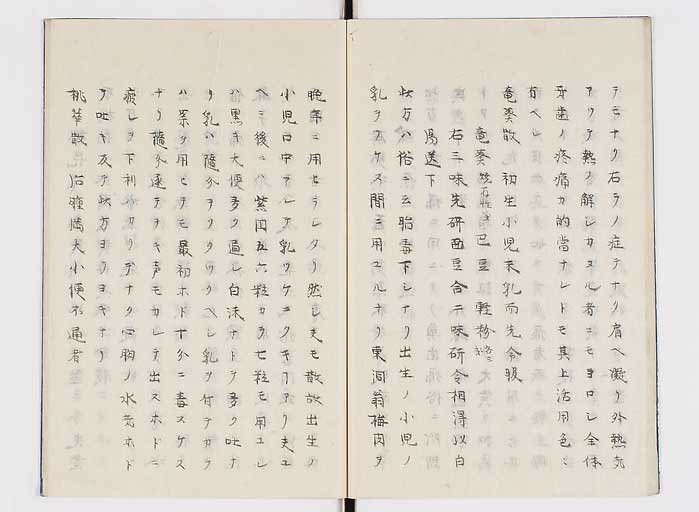 テモナク右ラノ症テナク肩ヘ凝リ外熱売
アリテ熱ノ解シカヌル者ニモヨロシ全体
牙歯ノ疼痛カ的當ナレトモ其上活用色々
有ベシ
竜葵散 初生小児未乳而先令服
竜葵 巴豆 軽粉
右三味先研西豆合二味研令相得以白
湯送下
此方ハ俗ニ云胎毒下シナリ出生ノ小児ノ
乳ヲツケヌ間ニ用ユルナリ東洞翁梅肉ヲ
晩年ニ用セラレタリ然レ夫モ散故出生ノ
小児口中アレテ乳ツケヨクキ アリ夫ユ
ヘミ後ニハ紫円五六粒カヲ七粒モ用ユレ
ハ黒キ大便多ク通シ白沫ナトヲ多ク吐ナ
リ乳ハ随分ヲクツクベシ乳ヲ付テカラ
ハ薬ヲ用ヒテモ最初ホト十分ニ毒スケヌ
ナリ随分速テヨキ声モカレテ出スホトニ
疲レヲ下利 カリデナク心胸ノ水気ホト
ヲ吐キ友テ此方ヨリヨキナリ
桃華散 治腫満大小便不通者